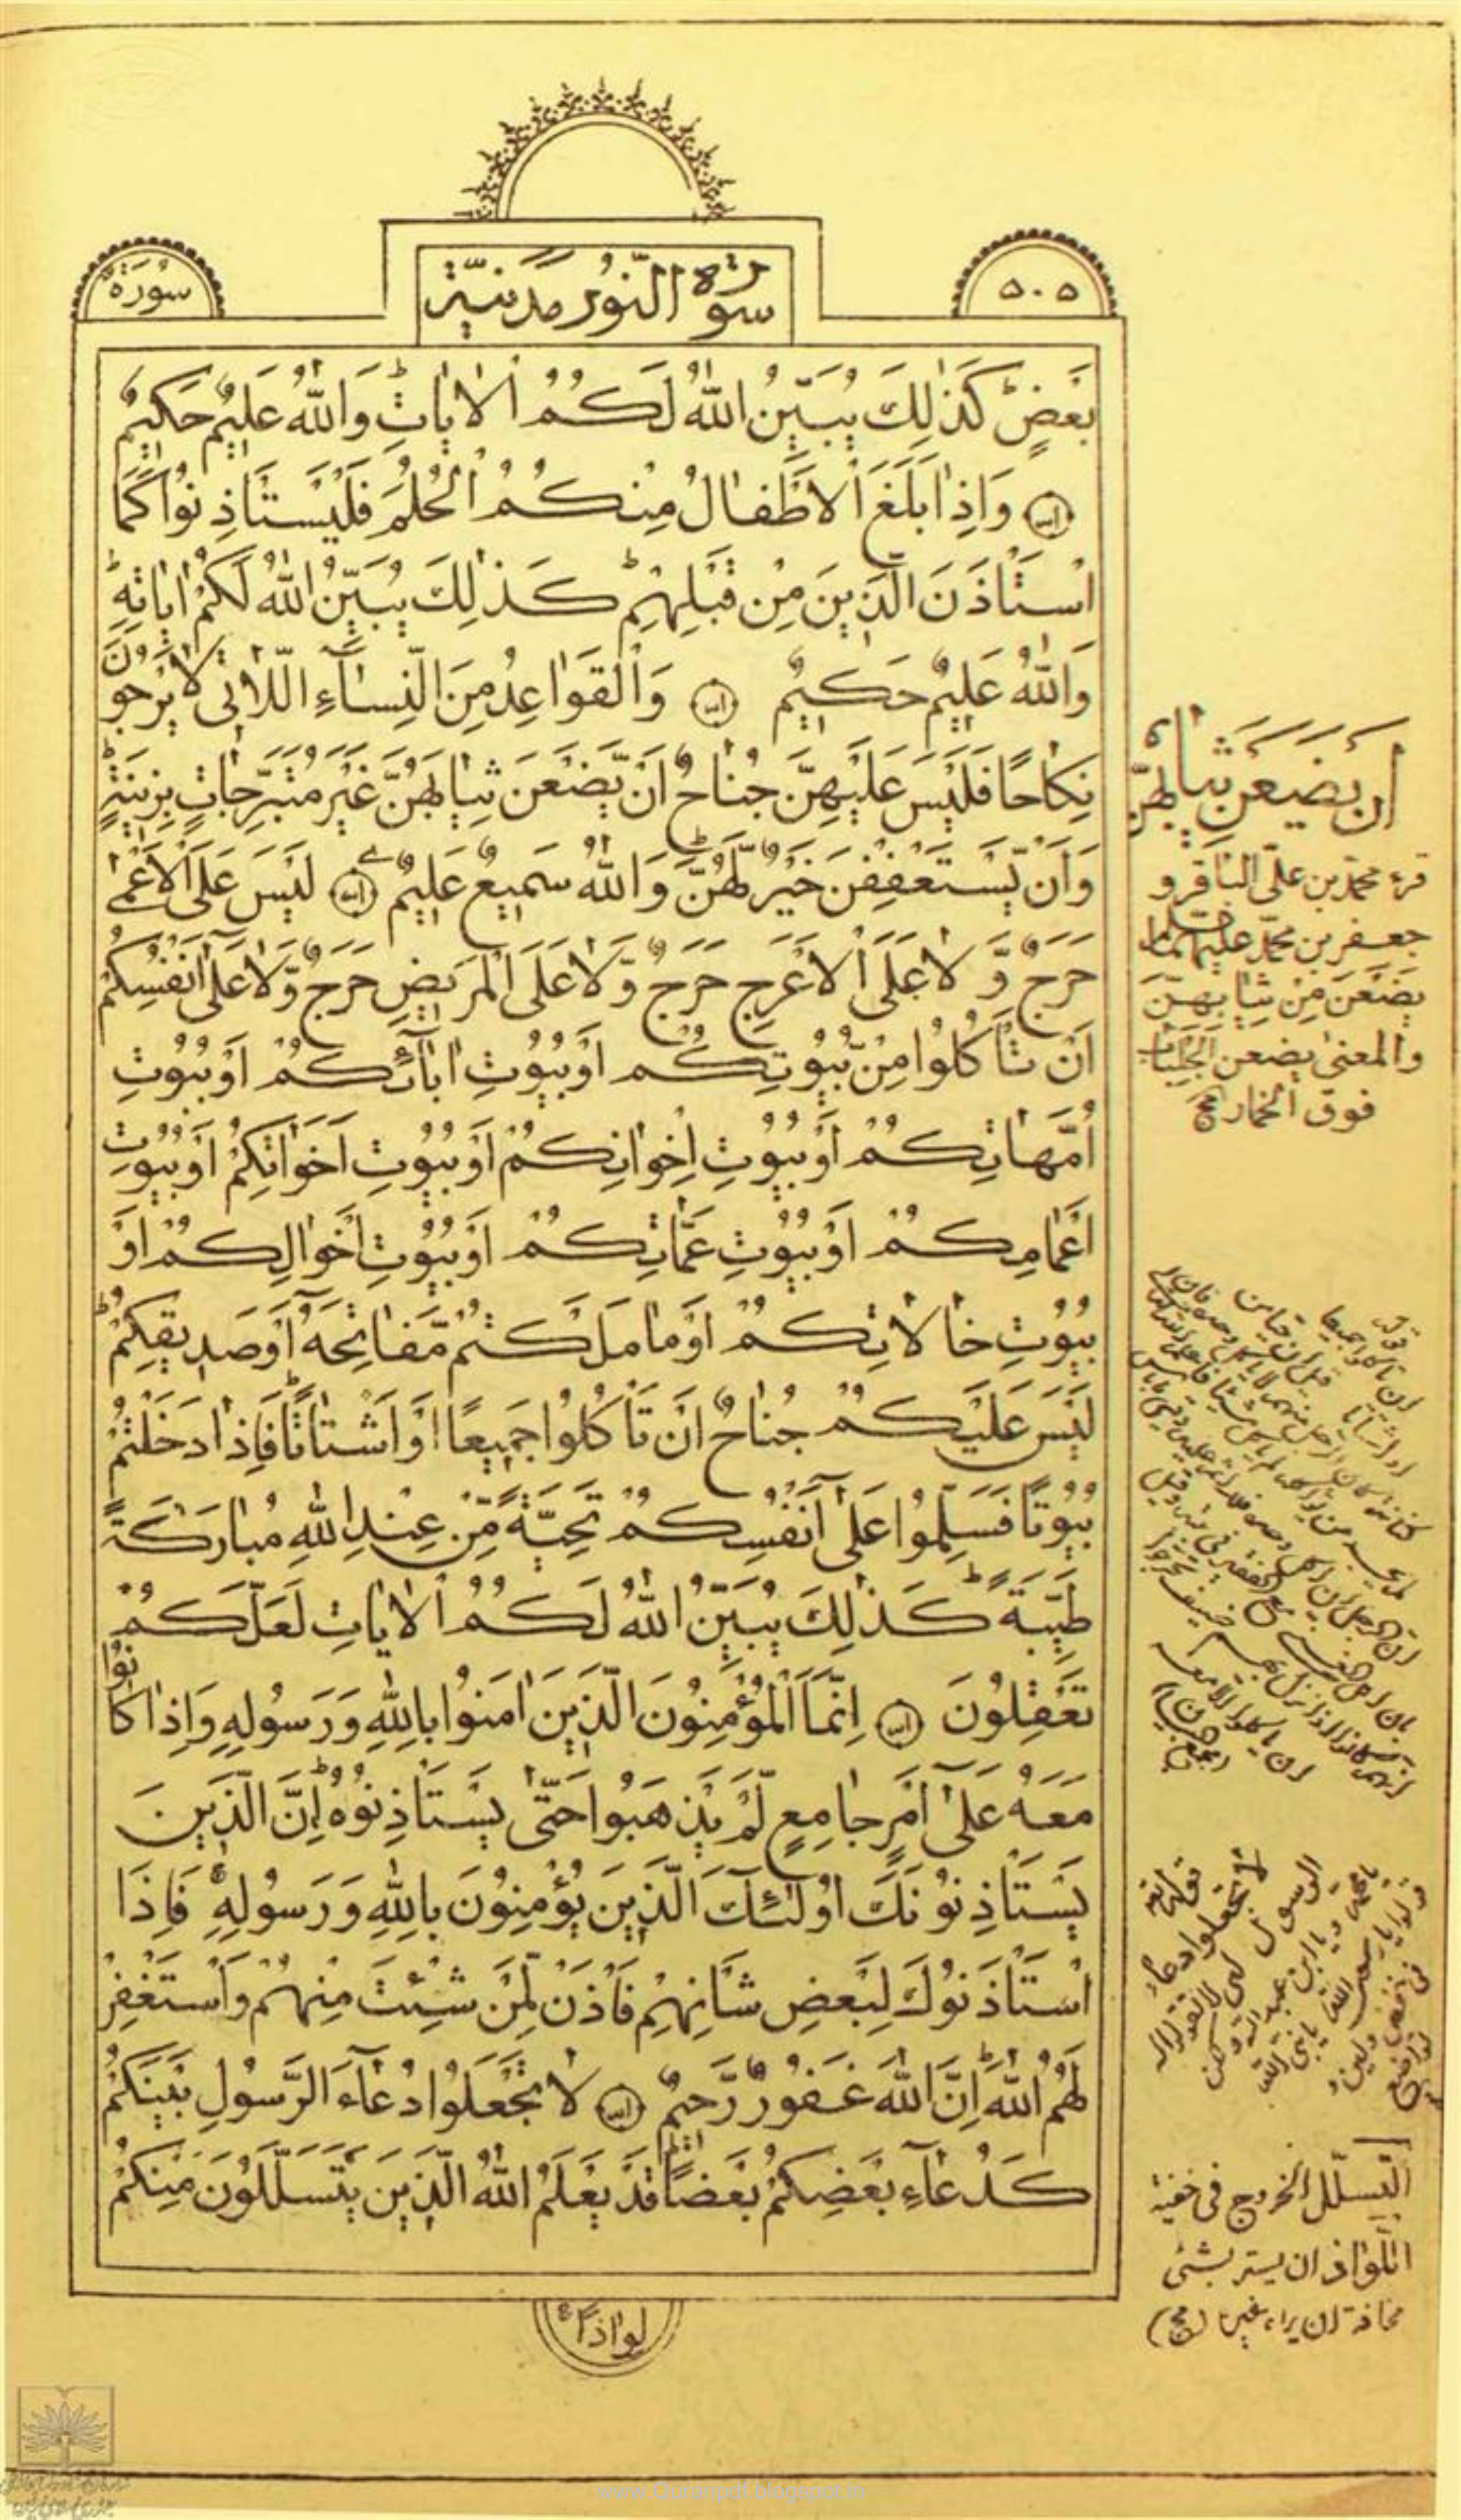 ٥٠٥
سُورَةُ النُّورِ مَدَنِيَّة
سُورَة
بَعْضٍ كَذٰلِكَ يُبَيِّنُ اللّٰهُ لَكُمُ الْاٰيَاتِ وَاللّٰهُ عَلِيمٌ حَكِيمٌ
وَاِذَا بَلَغَ الْاَطْفَالُ مِنْكُمُ الْحُلُمَ فَلْيَسْتَأْذِنُوا كَمَا
اسْتَأْذَنَ الَّذِينَ مِنْ قَبْلِهِمْ كَذٰلِكَ يُبَيِّنُ اللّٰهُ لَكُمْ اٰيَاتِهِ
وَاللّٰهُ عَلِيمٌ حَكِيمٌ وَالْقَوَاعِدُ مِنَ النِّسَاءِ اللَّاتِى لَا يَرْجُونَ
نِكَاحًا فَلَيْسَ عَلَيْهِنَّ جُنَاحٌ اَنْ يَضَعْنَ ثِيَابَهُنَّ غَيْرَ مُتَبَرِّجَاتٍ بِزِينَةٍ
وَاَنْ يَسْتَعْفِفْنَ خَيْرٌ لَهُنَّ وَاللّٰهُ سَمِيعٌ عَلِيمٌ لَيْسَ عَلَى الْاَعْمٰى
حَرَجٌ وَلَا عَلَى الْاَعْرَجِ حَرَجٌ وَلَا عَلَى الْمَرِيضِ حَرَجٌ وَلَا عَلٰى اَنْفُسِكُمْ
اَنْ تَأْكُلُوا مِنْ بُيُوتِكُمْ اَوْ بُيُوتِ اٰبَائِكُمْ اَوْ بُيُوتِ
اُمَّهَاتِكُمْ اَوْ بُيُوتِ اِخْوَانِكُمْ اَوْ بُيُوتِ اَخَوَاتِكُمْ اَوْ بُيُوتِ
اَعْمَامِكُمْ اَوْ بُيُوتِ عَمَّاتِكُمْ اَوْ بُيُوتِ اَخْوَالِكُمْ اَوْ
بُيُوتِ خَالَاتِكُمْ اَوْ مَا مَلَكْتُمْ مَفَاتِحَهُ اَوْ صَدِيقِكُمْ
لَيْسَ عَلَيْكُمْ جُنَاحٌ اَنْ تَأْكُلُوا جَمِيعًا اَوْ اَشْتَاتًا فَاِذَا دَخَلْتُمْ
بُيُوتًا فَسَلِّمُوا عَلٰى اَنْفُسِكُمْ تَحِيَّةً مِنْ عِنْدِ اللّٰهِ مُبَارَكَةً
طَيِّبَةً كَذٰلِكَ يُبَيِّنُ اللّٰهُ لَكُمُ الْاٰيَاتِ لَعَلَّكُمْ
تَعْقِلُونَ اِنَّمَا الْمُؤْمِنُونَ الَّذِينَ اٰمَنُوا بِاللّٰهِ وَرَسُولِهِ وَاِذَا كَانُوا
مَعَهُ عَلٰى اَمْرٍ جَامِعٍ لَمْ يَذْهَبُوا حَتّٰى يَسْتَأْذِنُوهُ اِنَّ الَّذِينَ
يَسْتَأْذِنُونَكَ اُولٰئِكَ الَّذِينَ يُؤْمِنُونَ بِاللّٰهِ وَرَسُولِهِ فَاِذَا
اسْتَأْذَنُوكَ لِبَعْضِ شَأْنِهِمْ فَأْذَنْ لِمَنْ شِئْتَ مِنْهُمْ وَاسْتَغْفِرْ
لَهُمُ اللّٰهَ اِنَّ اللّٰهَ غَفُورٌ رَحِيمٌ لَا تَجْعَلُوا دُعَاءَ الرَّسُولِ بَيْنَكُمْ
كَدُعَاءِ بَعْضِكُمْ بَعْضًا قَدْ يَعْلَمُ اللّٰهُ الَّذِينَ يَتَسَلَّلُونَ مِنْكُمْ
لِوَاذًا
اَنْ يَضَعْنَ ثِيَابَهُنَّ
قرء محمد بن على الباقر و
جعفر بن محمد عليهما
يضعن من ثيابهن
والمعنى يضعن الجلباب
فوق الخمار
التسلل الخروج فى خفية
اللواذ ان يستتر بشئ
مخافة ان يراه
www.Quranpdf.blogspot.in